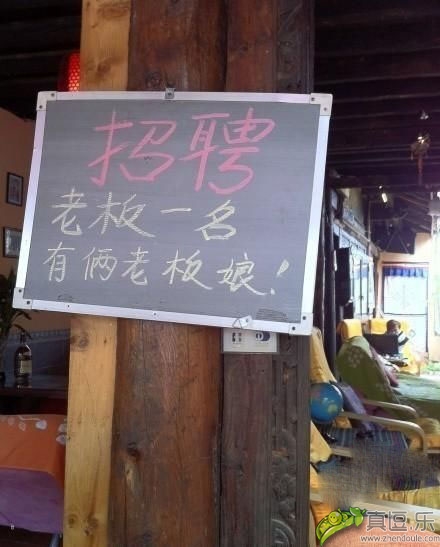 招聘
老板一名
有俩老板娘！
真逗.乐
www.zhendoule.com